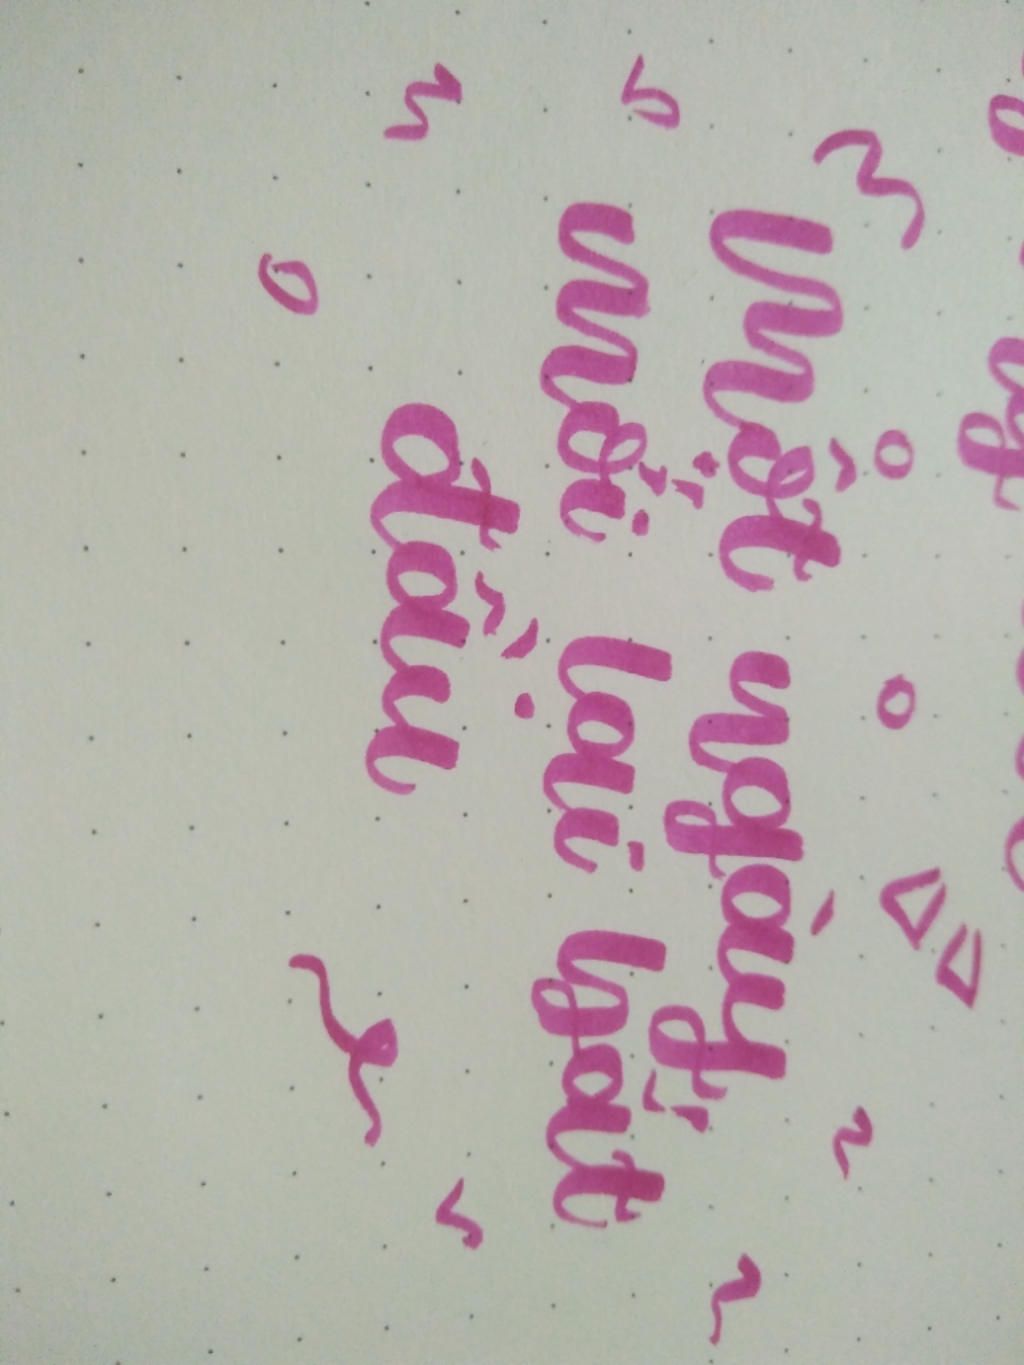 Một ngày
mới lại bắt
đầu